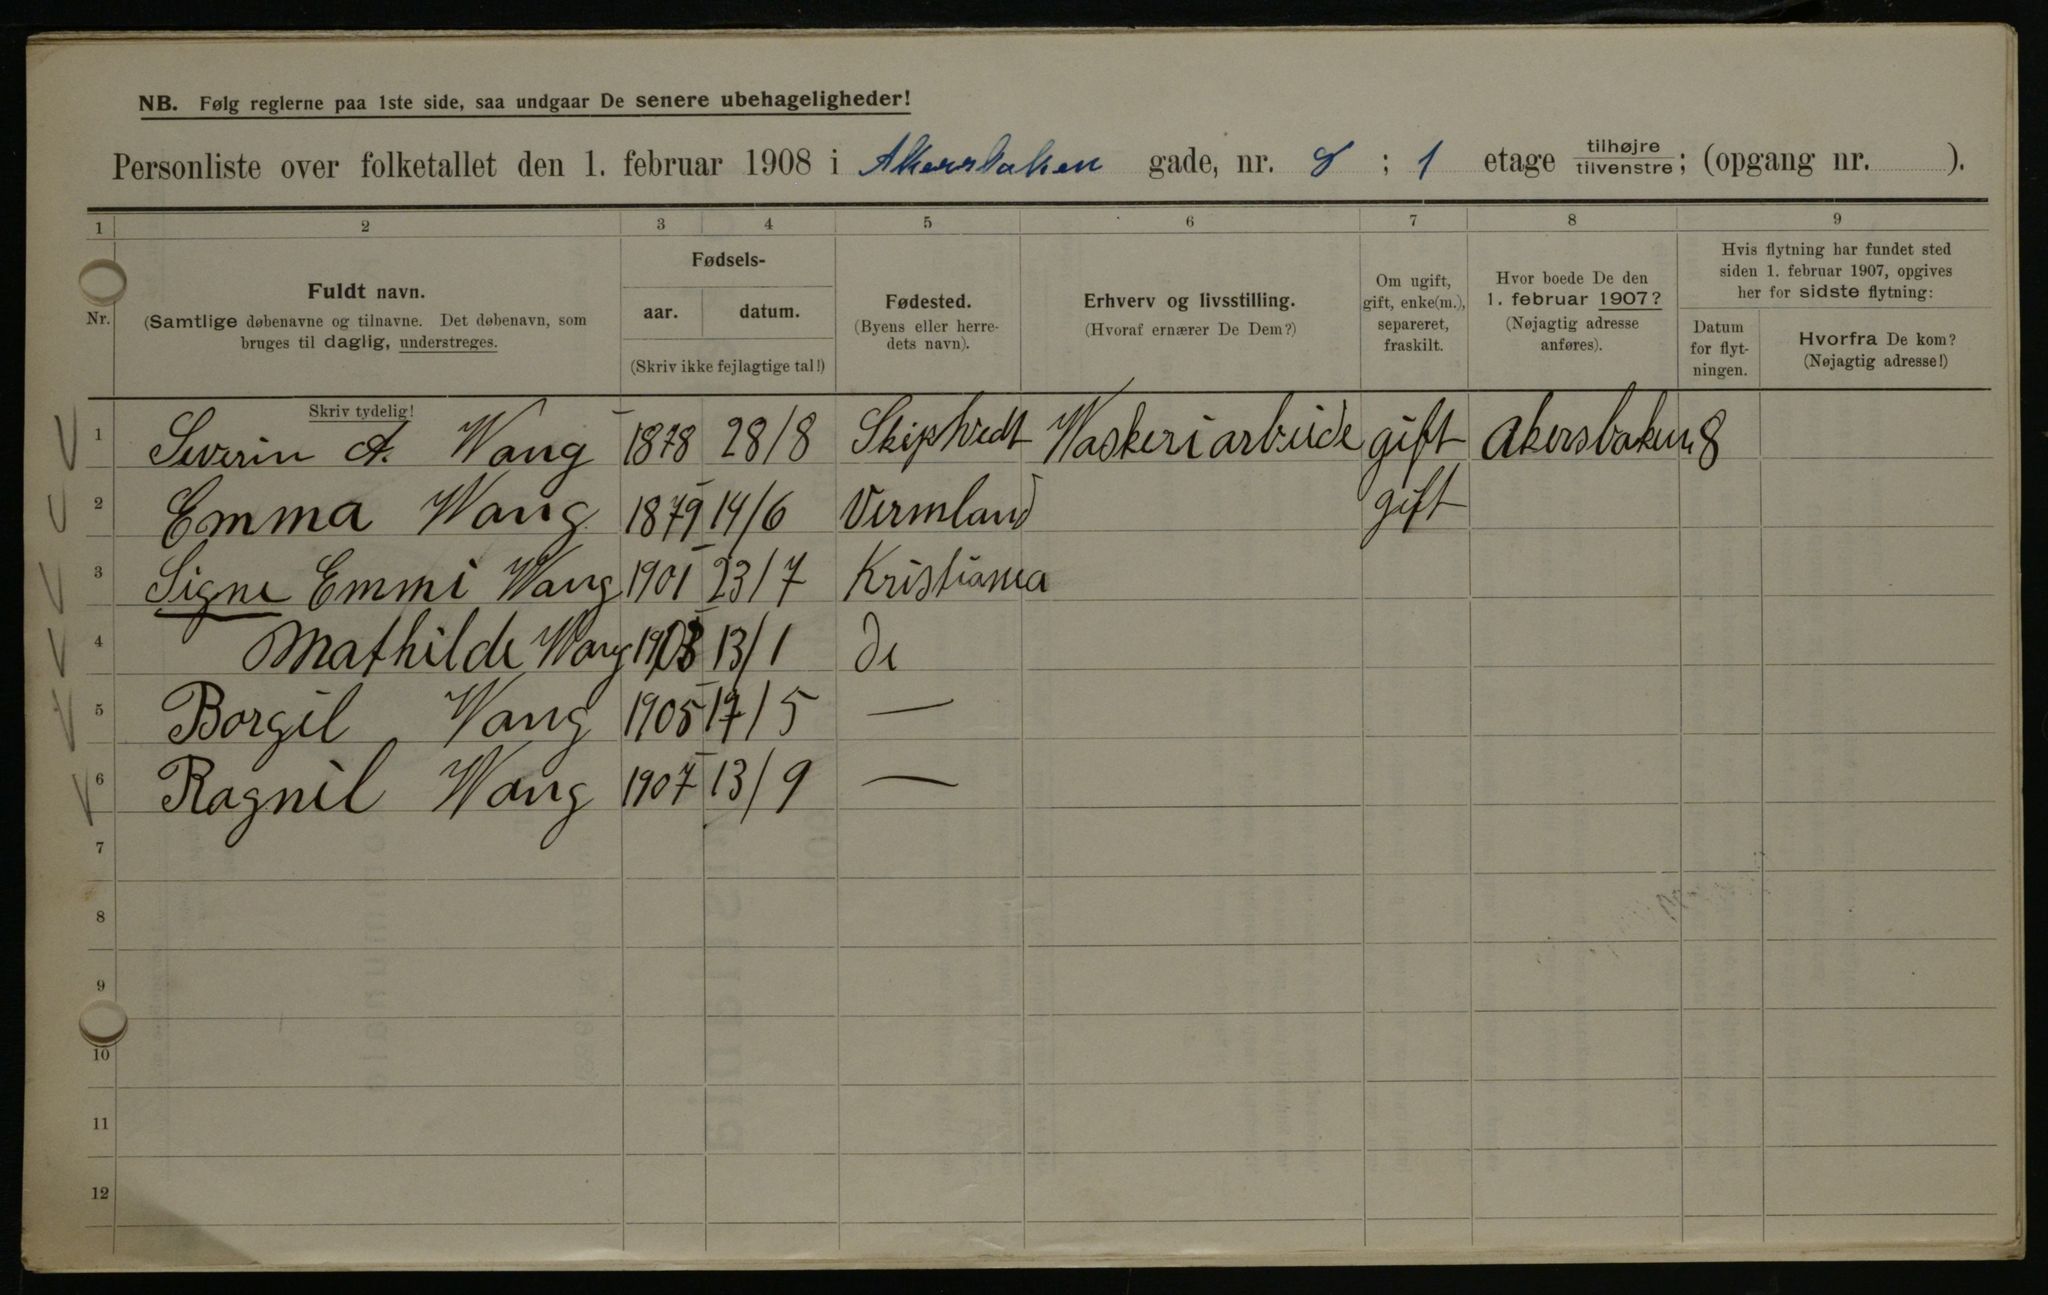 NB. Følg reglerne paa 1ste side, saa undgaar De senere ubehageligheder!
Personliste over folketallet den 1. februar 1908 i Akersbaken gade, nr. 8 ; 1 etage tilhøjre/tilvenstre; (opgang nr. ).
1 2 3 4 5 6 7 8 9
Nr. Fuldt navn. (Samtlige døbenavne og tilnavne. Det døbenavn, som bruges til daglig, understreges.
Fødsels- aar. datum. (Skriv ikke fejlagtige tal!)
Fødested. (Byens eller herredets navn).
Erhverv og livsstilling. (Hvoraf ernærer De Dem?)
Om ugift, gift, enke(m.), separeret, fraskilt.
Hvor boede De den 1. februar 1907? (Nøjagtig adresse anføres).
Hvis flytning har fundet sted siden 1. februar 1907, opgives her for sidste flytning:
Datum for flytningen. Hvorfra De kom? (Nøjagtig adresse!)
Skriv tydelig!
1 Severin A. Wang 1878 28/8 Skiphvedt Waskeriarbeide gift Akersbaken 8
2 Emma Wang 1879 14/6 Vermland gift
3 Signe Emmi Wang 1901 23/7 Kristiania
4 Mathilde Wang 1903 13/1 De
5 Borgil Wang 1905 17/5 —
6 Ragnil Wang 1907 13/9 —
7
8
9
10
11
12